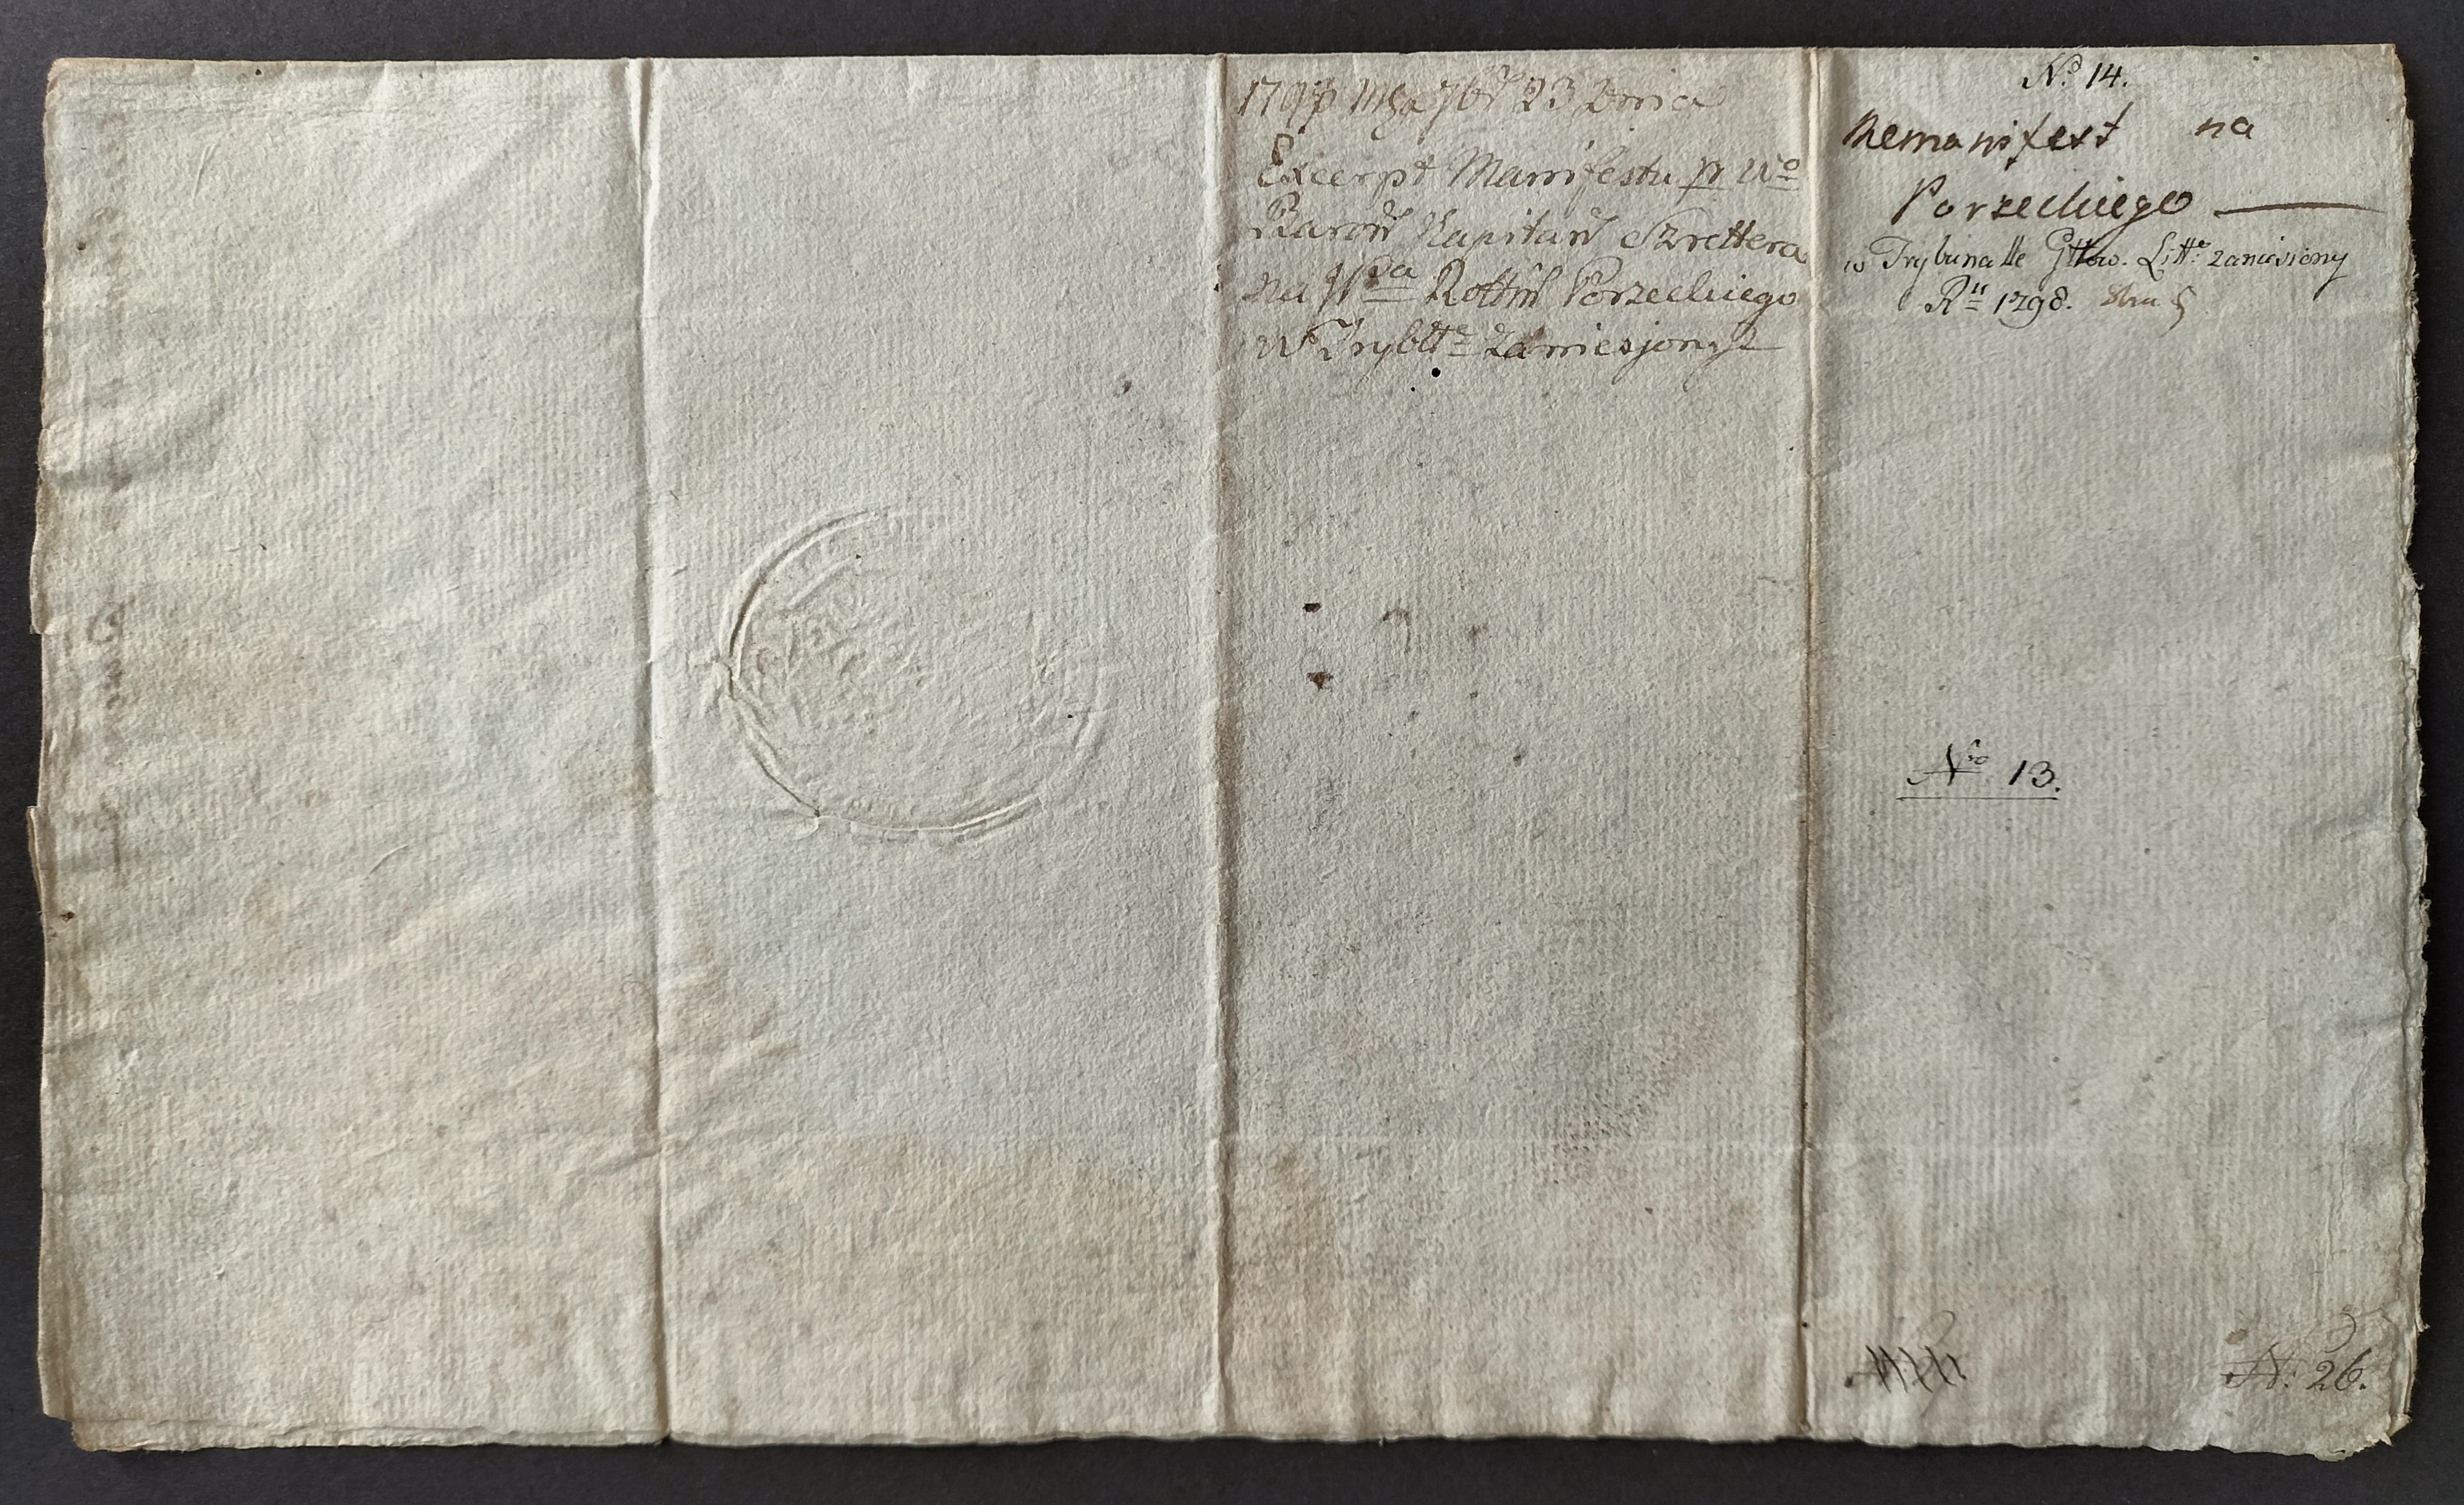 Msa 7br 23 Dnia
Excerpt Manifestu pr Wo
Baron Kapitan Szrettera
na Rottm Porzeckiego
w Trybtte zaniesjony
No 14.
Remanifest na
Porzeckiego
w Trybunalle Gttow. Litt: zaniesiony
Ru 1798.
Nro 13.
N: 26.